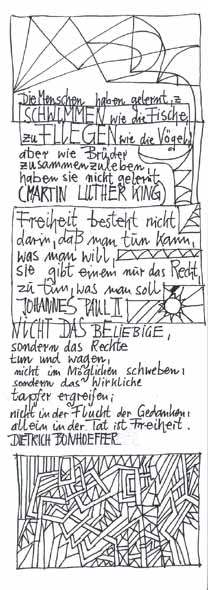 Die Menschen haben gelernt, z
SCHWIMMEN wie die Fische,
zu FLIEGEN wie die Vögel,
aber wie Brüder
zusammenzuleben
haben sie nicht gelernt.
(MARTIN LUTHER KING)
Freiheit besteht nicht
darin, daß man tun kann,
was man will,
sie gibt einem nur das Recht,
zu tun, was man soll
JOHANNES PAUL II
NICHT DAS BELIEBIGE,
sondern das Rechte
tun und wagen,
nicht im Möglichen schweben,
sondern das Wirkliche
tapfer ergreifen;
nicht in der Flucht der Gedanken,
allein in der Tat ist Freiheit.
DIETRICH BONHOEFFER